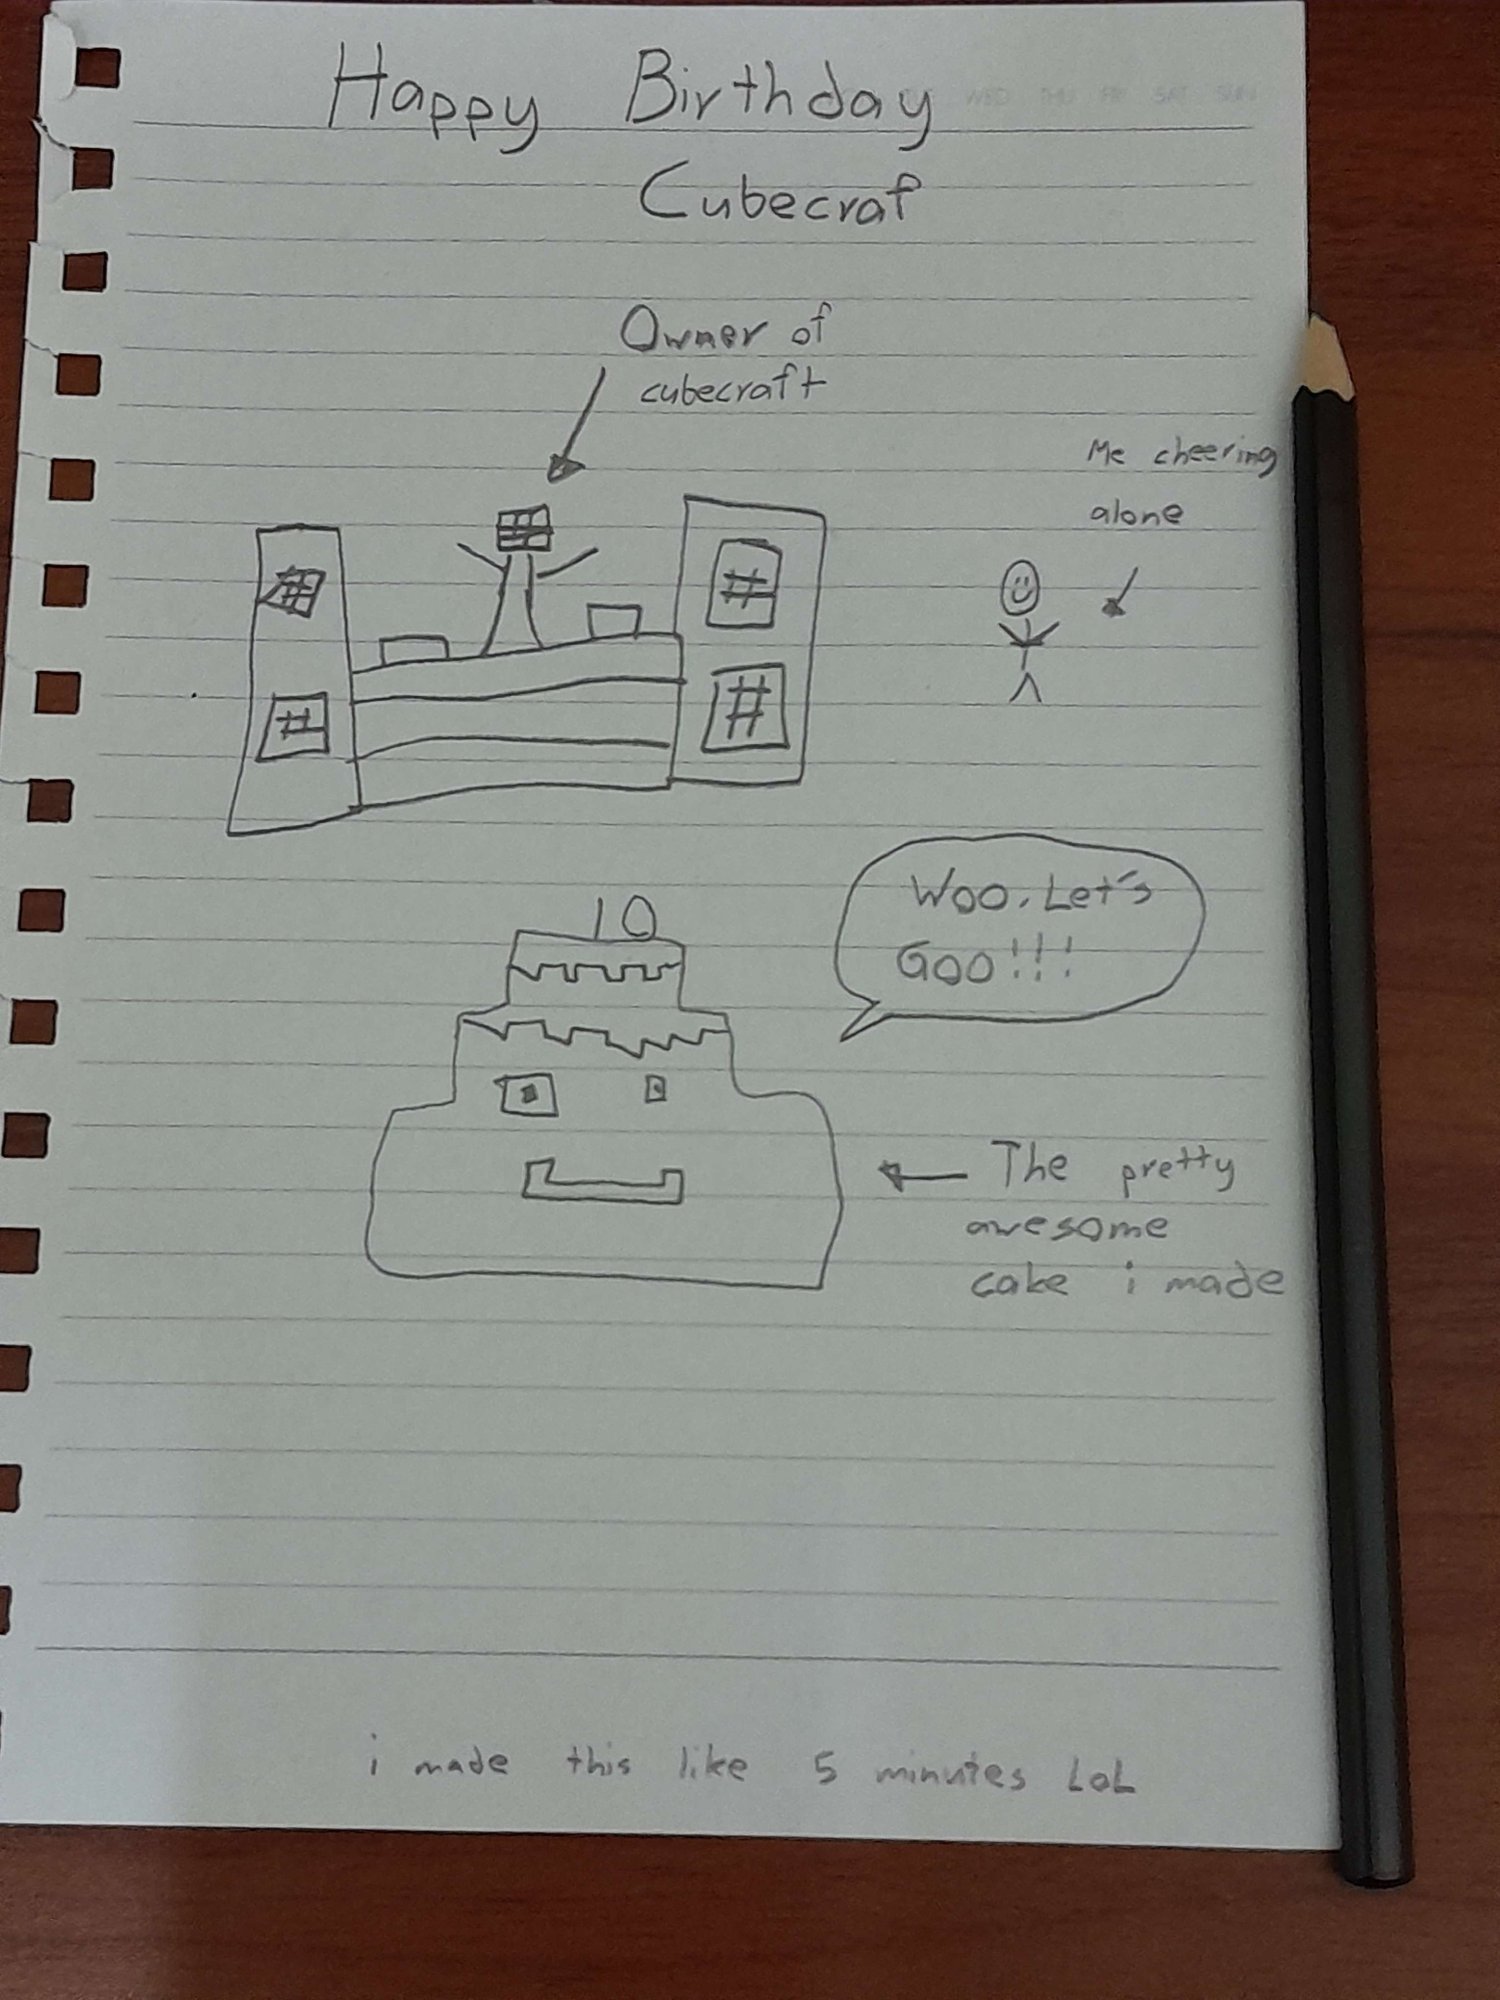 Happy Birthday
Cubecraf
Owner of
cubecraft
Me cheering
alone
10
Woo. Let's
Goo!!!
The pretty
awesome
cake i made
i made this like 5 minutes LoL